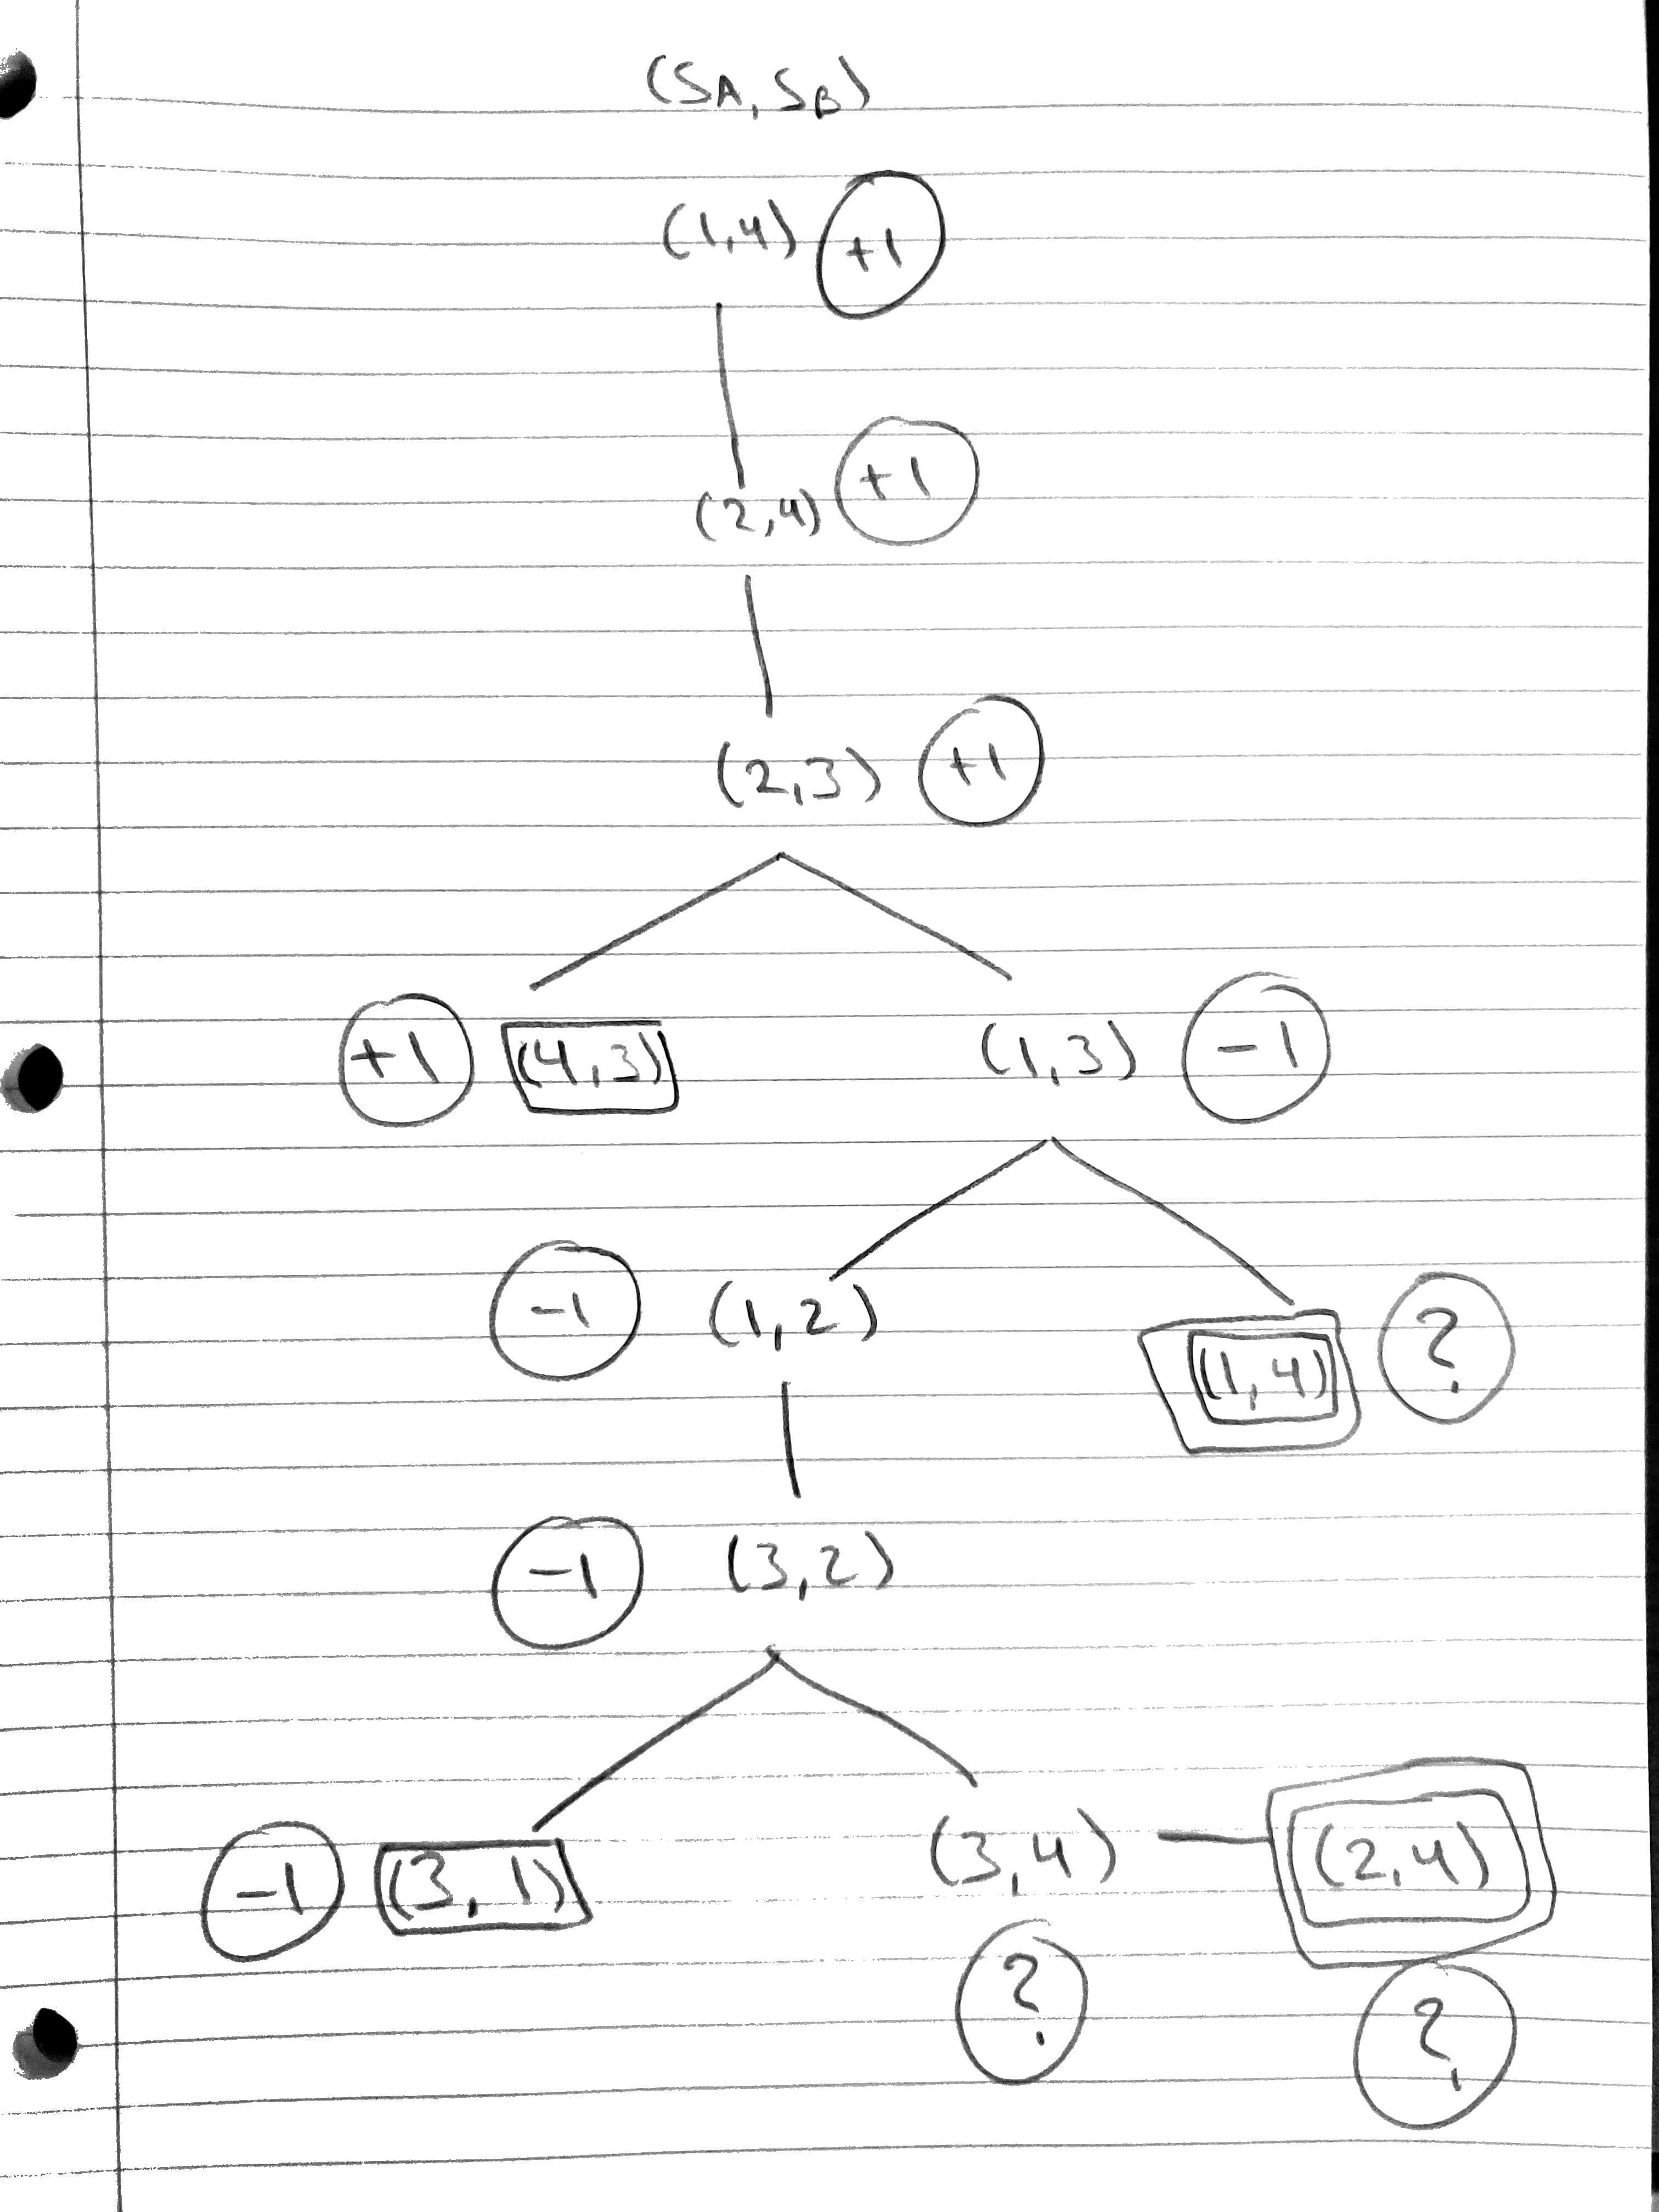 (SA, SB)
(1,4) +1
(2,4) +1
(2,3) +1
+1 (4,3) (1,3) -1
-1 (1,2) (1,4) ?
-1 (3,2)
-1 (3,1) (3,4) (2,4)
? ?